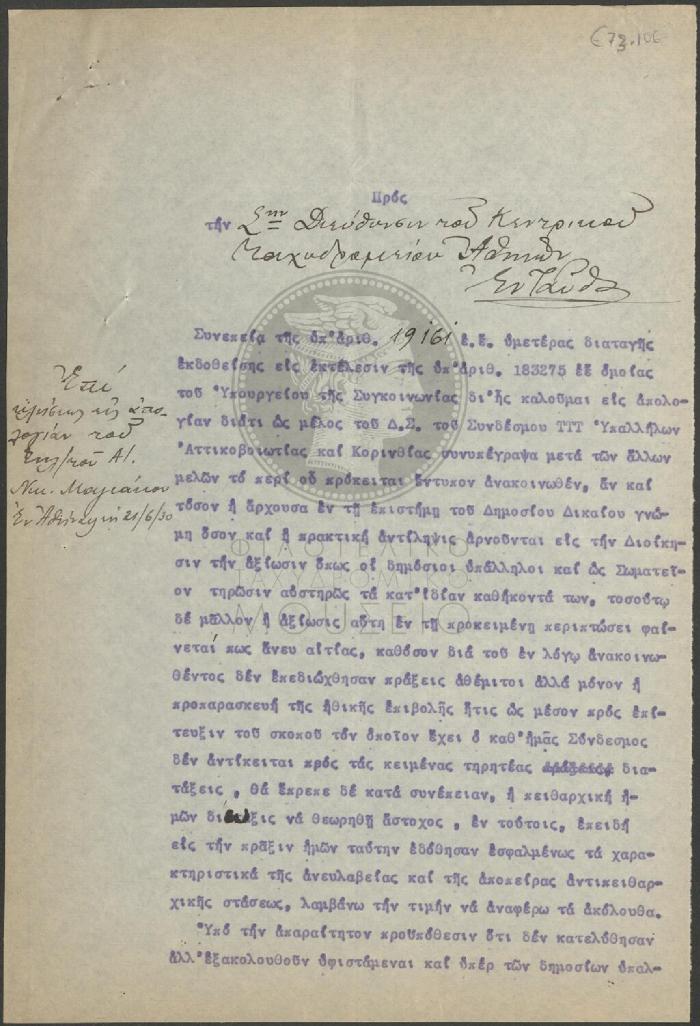 €73.106
Πρός
τήν Σην Διεύθυνσιν τοῦ Κεντρικοῦ
Ταχυδρομείου Ἀθηνῶν
Ἐνταῦθα
Συνεπείᾳ τῆς ὑπ'ἀριθ. 19161 ἐ.ἔ. ὑμετέρας διαταγῆς
ἐκδοθείσης εἰς ἐκτέλεσιν τῆς ὑπ'ἀριθ. 183275 ἐξ ὁμοίας
τοῦ Ὑπουργείου τῆς Συγκοινωνίας δι'ἧς καλοῦμαι εἰς ἀπολο-
γίαν διάτι ὡς μέλος τοῦ Δ.Σ. τοῦ Συνδέσμου ΤΤΤ Ὑπαλλήλων
Ἀττικοβοιωτίας καί Κορινθίας συνυπέγραψα μετά τῶν ἄλλων
μελῶν τό περί οὗ πρόκειται ἔντυπον ἀνακοινωθέν, ἄν καί
τόσον ἡ ἄρχουσα ἐν τῇ ἐπιστήμῃ τοῦ Δημοσίου Δικαίου γνώ-
μη ὅσον καί ἡ πρακτική ἀντίληψις ἀρνοῦνται εἰς τήν Διοίκη-
σιν τήν ἀξίωσιν ὅπως οἱ δημόσιοι ὑπάλληλοι καί ὡς Σωματεῖ-
ον τηρῶσιν αὐστηρῶς τά κατ'ἰδίαν καθήκοντά των, τοσούτῳ
δέ μᾶλλον ἡ ἀξίωσις αὕτη ἐν τῇ προκειμένῃ περιπτώσει φαί-
νεταί πως ἄνευ αἰτίας, καθόσον διά τοῦ ἐν λόγῳ ἀνακοινω-
θέντος δέν ἐπεδιώχθησαν πράξεις ἀθέμιτοι ἀλλά μόνον ἡ
προπαρασκευή τῆς ἠθικῆς ἐπιβολῆς ἥτις ὡς μέσον πρός ἐπί-
τευξιν τοῦ σκοποῦ τόν ὁποῖον ἔχει ὁ καθ'ἡμᾶς Σύνδεσμος
δέν ἀντίκειται πρός τάς κειμένας τηρητέας δια-
τάξεις, θά ἔπρεπε δέ κατά συνέπειαν, ἡ πειθαρχική ἡ-
μῶν δίωξις νά θεωρηθῇ ἄστοχος, ἐν τούτοις, ἐπειδή
εἰς τήν πρᾶξιν ἡμῶν ταύτην ἐδόθησαν ἐσφαλμένως τά χαρα-
κτηριστικά τῆς ἀνευλαβείας καί τῆς ἀποπείρας ἀντιπειθαρ-
χικῆς στάσεως, λαμβάνω τήν τιμήν νά ἀναφέρω τά ἀκόλουθα.
Ὑπό τήν ἀπαραίτητον προϋπόθεσιν ὅτι δέν κατελύθησαν
ἀλλ'ἐξακολουθοῦν ὑφιστάμεναι καί ὑπέρ τῶν δημοσίων ὑπαλ-
Ἐπί
εἰς ἀπο-
λογίαν τοῦ
Α΄.
Νικ.
Ἐν Ἀθήναις τῇ 21/6/30
ΦΙΛΟΤΕΛΙΚΟ
ΤΑΧΥΔΡΟΜΙΚΟ
ΜΟΥΣΕΙΟ